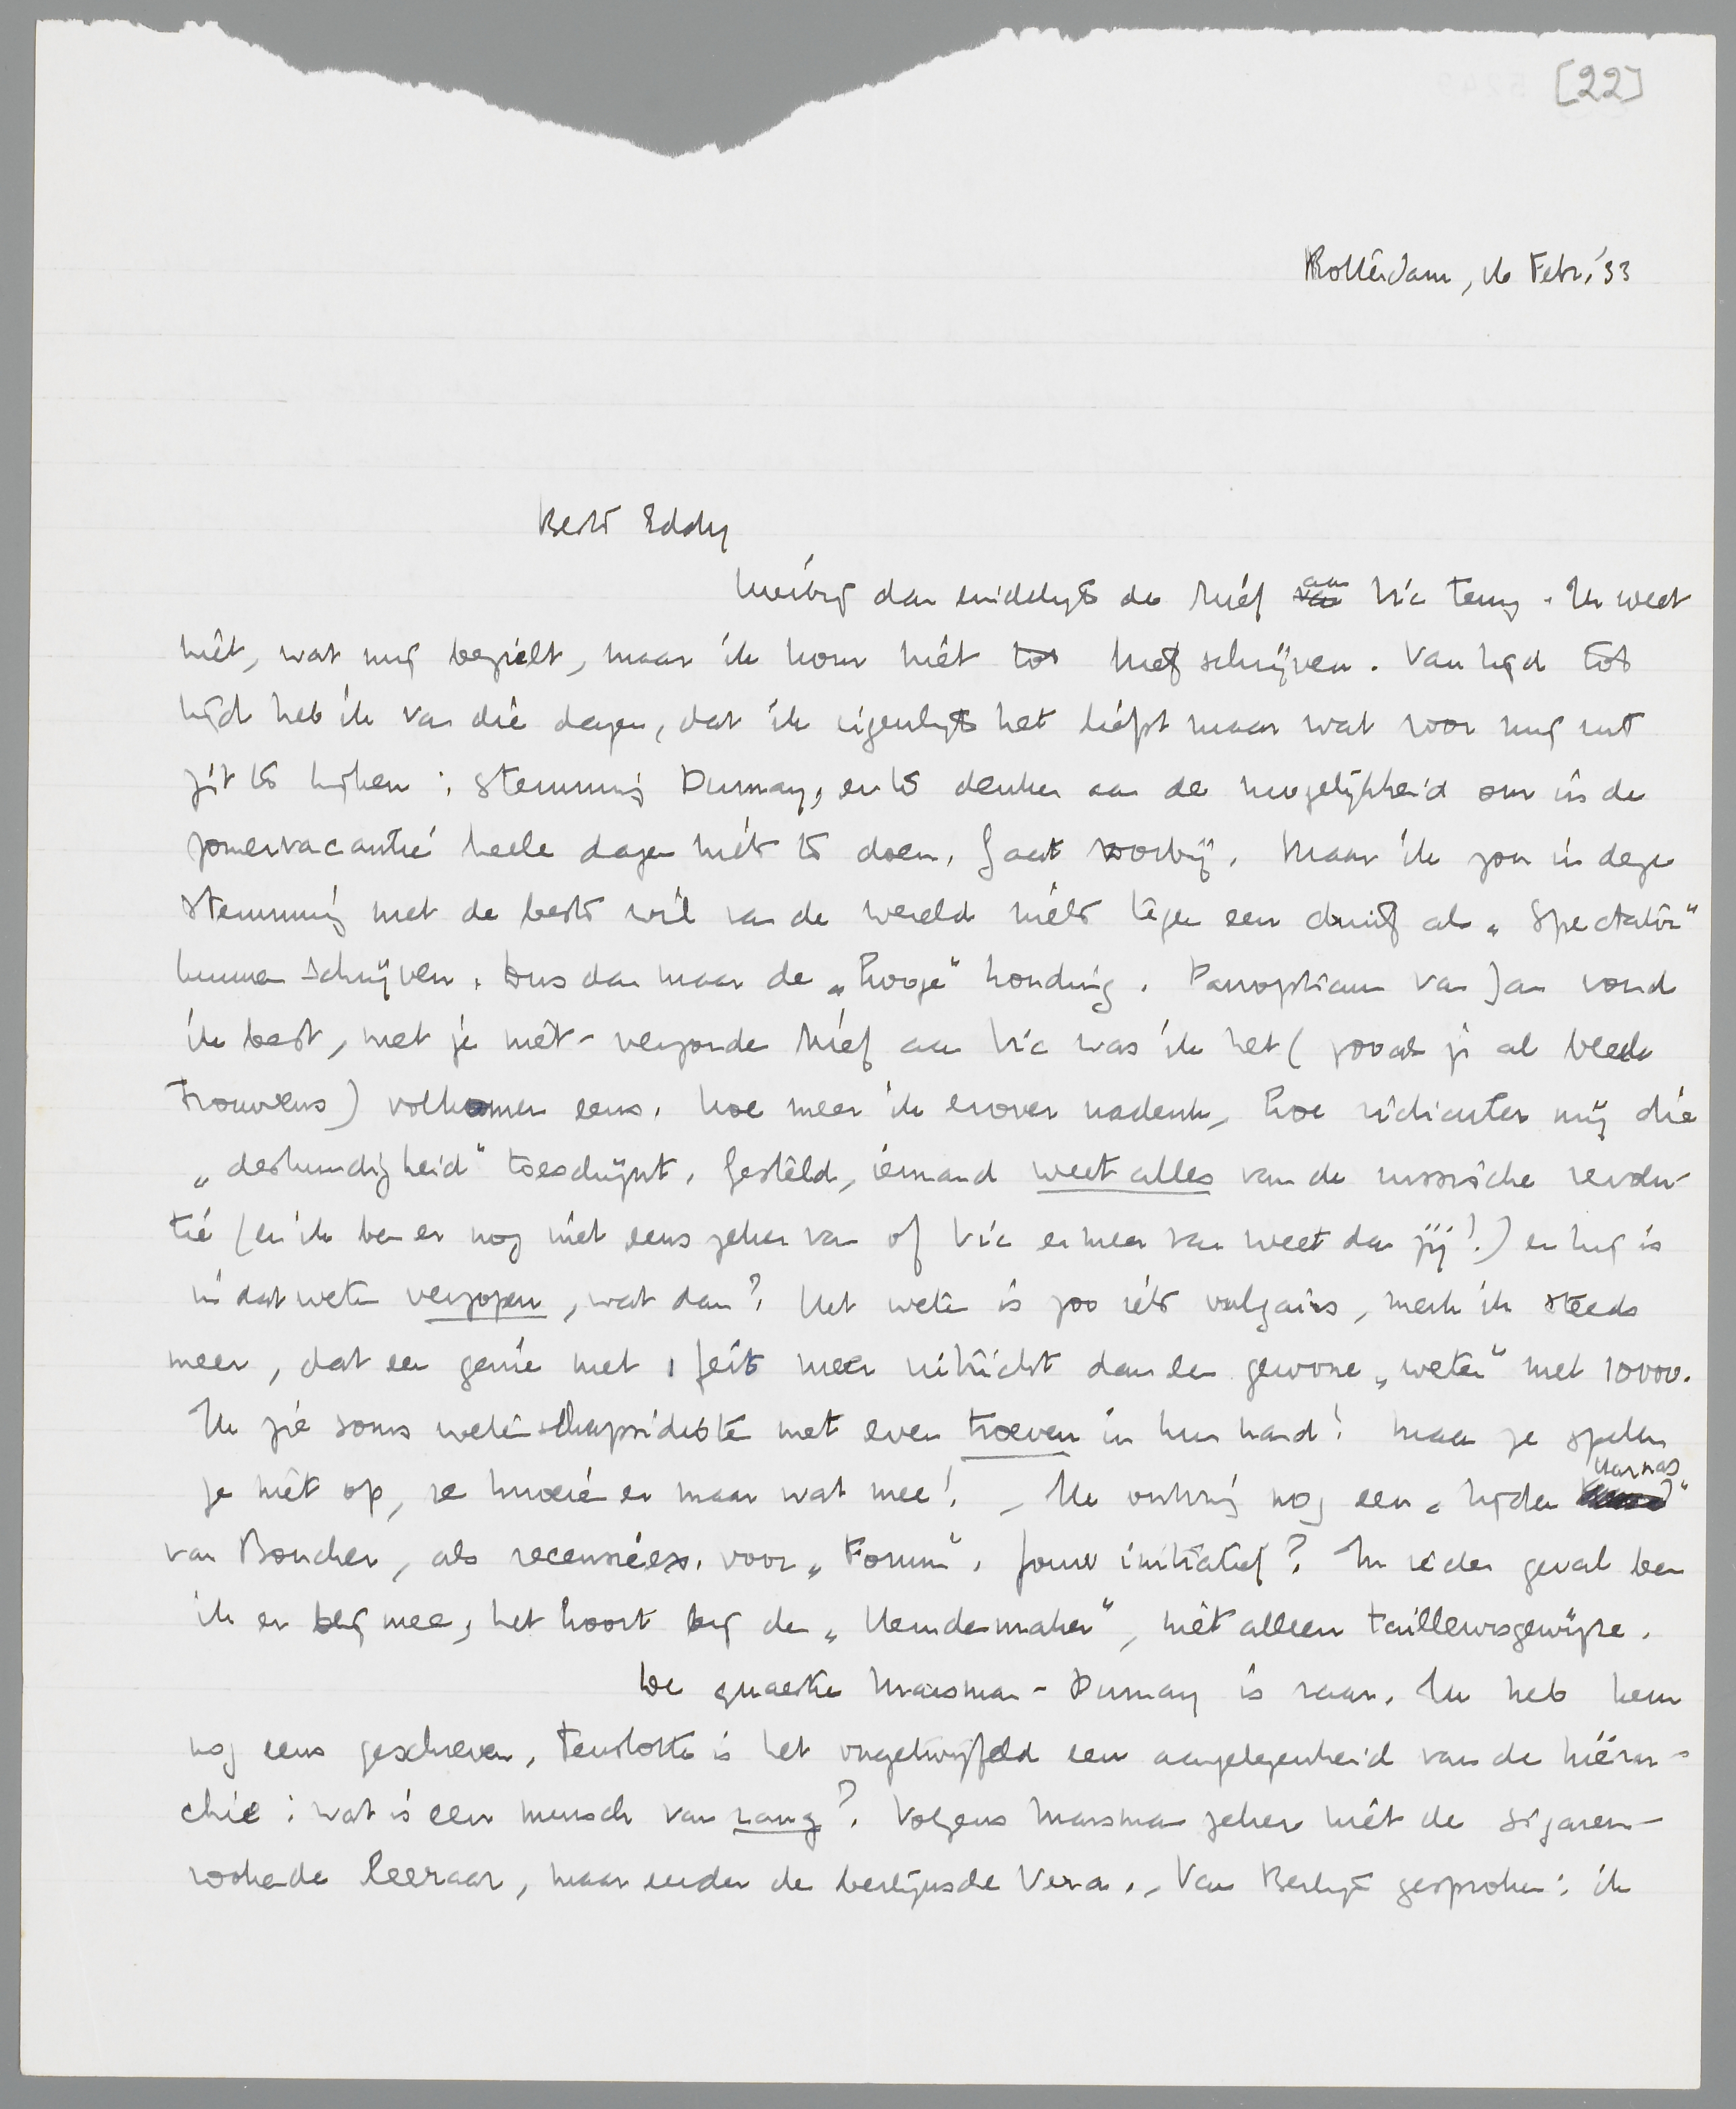 [22]
Rotterdam, 16 Febr. '33
Beste Eddy
Hierbij dan eindelijk de brief aan Vic terug. Ik weet
niet, wat mij bezielt, maar ik kom niet tot brief schrijven. Van tijd tot
tijd heb ik van die dagen, dat ik eigenlijk het liefst maar wat voor mij uit
zit te kijken: stemming Dumay, en te denken aan de mogelijkheid om in de
zomervacantie heele dagen niets te doen. Gaat voorbij. Maar ik zou in deze
stemming met de beste wil van de wereld niets tegen een druif als „Spectator”
kunnen schrijven. Dus dan maar de „hooge” houding. Panopticum van Jan vond
ik best, met je niet-verzonden brief aan Vic was ik het (zooals je al bleek
trouwens) volkomen eens. Hoe meer ik erover nadenk, hoe ridiculer mij die
„deskundigheid” toeschijnt. Gesteld, iemand weet alles van de russische revolu-
tie (en ik ben er nog niet eens zeker van of Vic er meer van weet dan jij!) en hij is
in dat weten verzopen, wat dan? Het weten is zoo iets vulgairs, merk ik steeds
meer, dat een genie met 1 feit meer uitricht dan een gewone „weter” met 10000.
Ik zie soms wetenschapsidioten met even troeven in hun hand! Maar ze spelen
ze niet op, ze knoeien er maar wat mee! – Ik ontving nog een „Tijden Harnas”
van Boucher, als recensieex. voor „Forum”. Jouw initiatief? In ieder geval ben
ik er blij mee; het hoort bij de „Hemdenmaker”, niet alleen tailleursgewijze.
De quaestie Marsman-Dumay is raar. Ik heb hem
nog eens geschreven. Tenslotte is het ongetwijfeld een aangelegenheid van de hiërar-
chie: wat is een mensch van rang? Volgens Marsman zeker niet de sigaren-
rookende leeraar, maar eerder de berlijnsche Vera. – Van Berlijn gesproken: ik